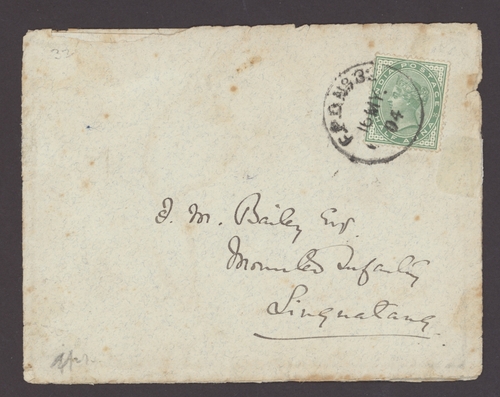 33
F.P.O. No 33
16 MY.
04
INDIA POSTAGE
F. M. Bailey Esq.
Mounted Infantry
Linguatang